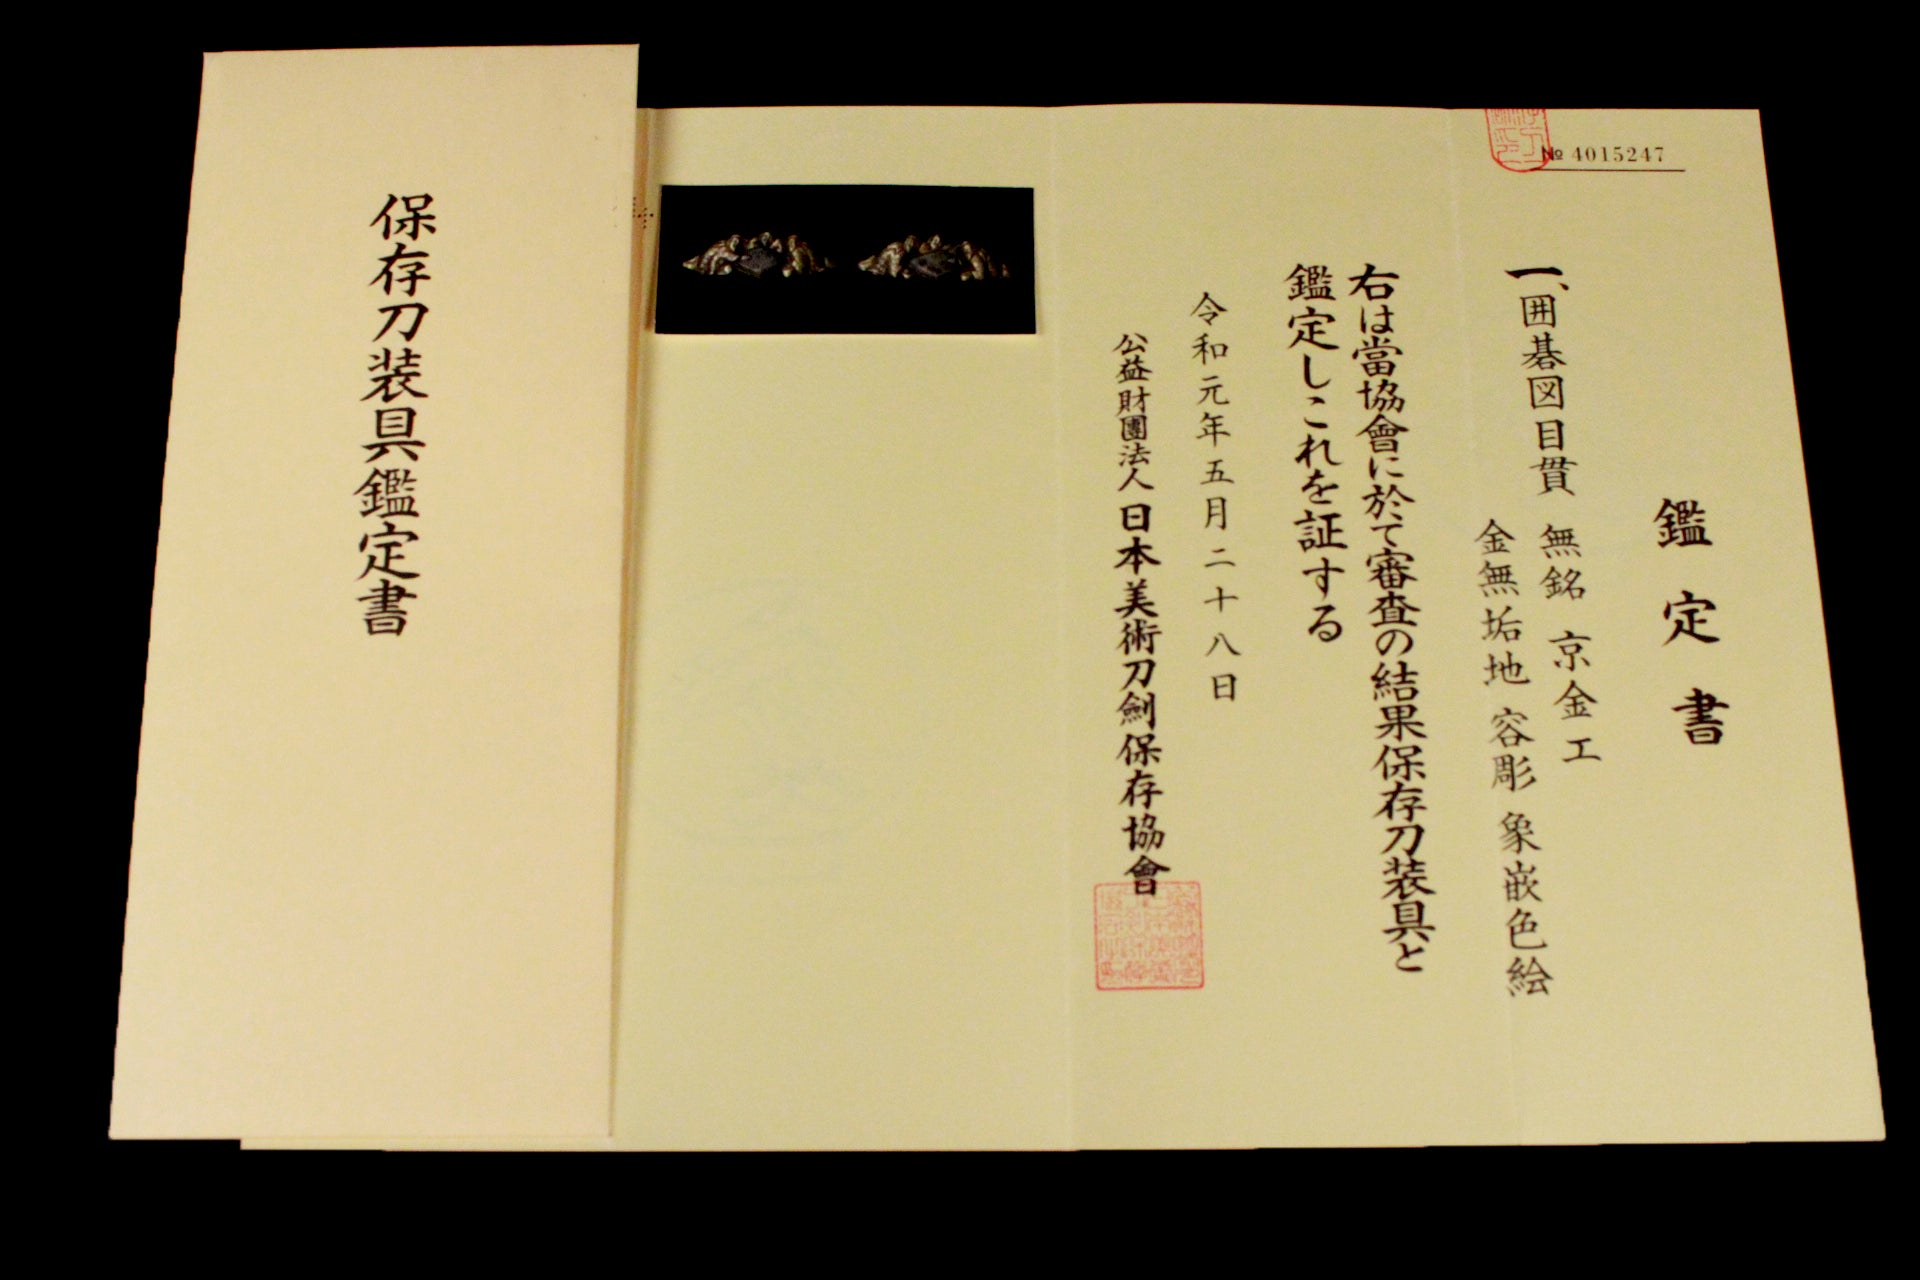 保存刀装具鑑定書
№ 4015247
鑑定書
一、囲碁図目貫 無銘 京金工
金無垢地 容彫 象嵌色絵
右は當協會に於て審査の結果保存刀装具と
鑑定しこれを証する
令和元年五月二十八日
公益財團法人 日本美術刀劍保存協會